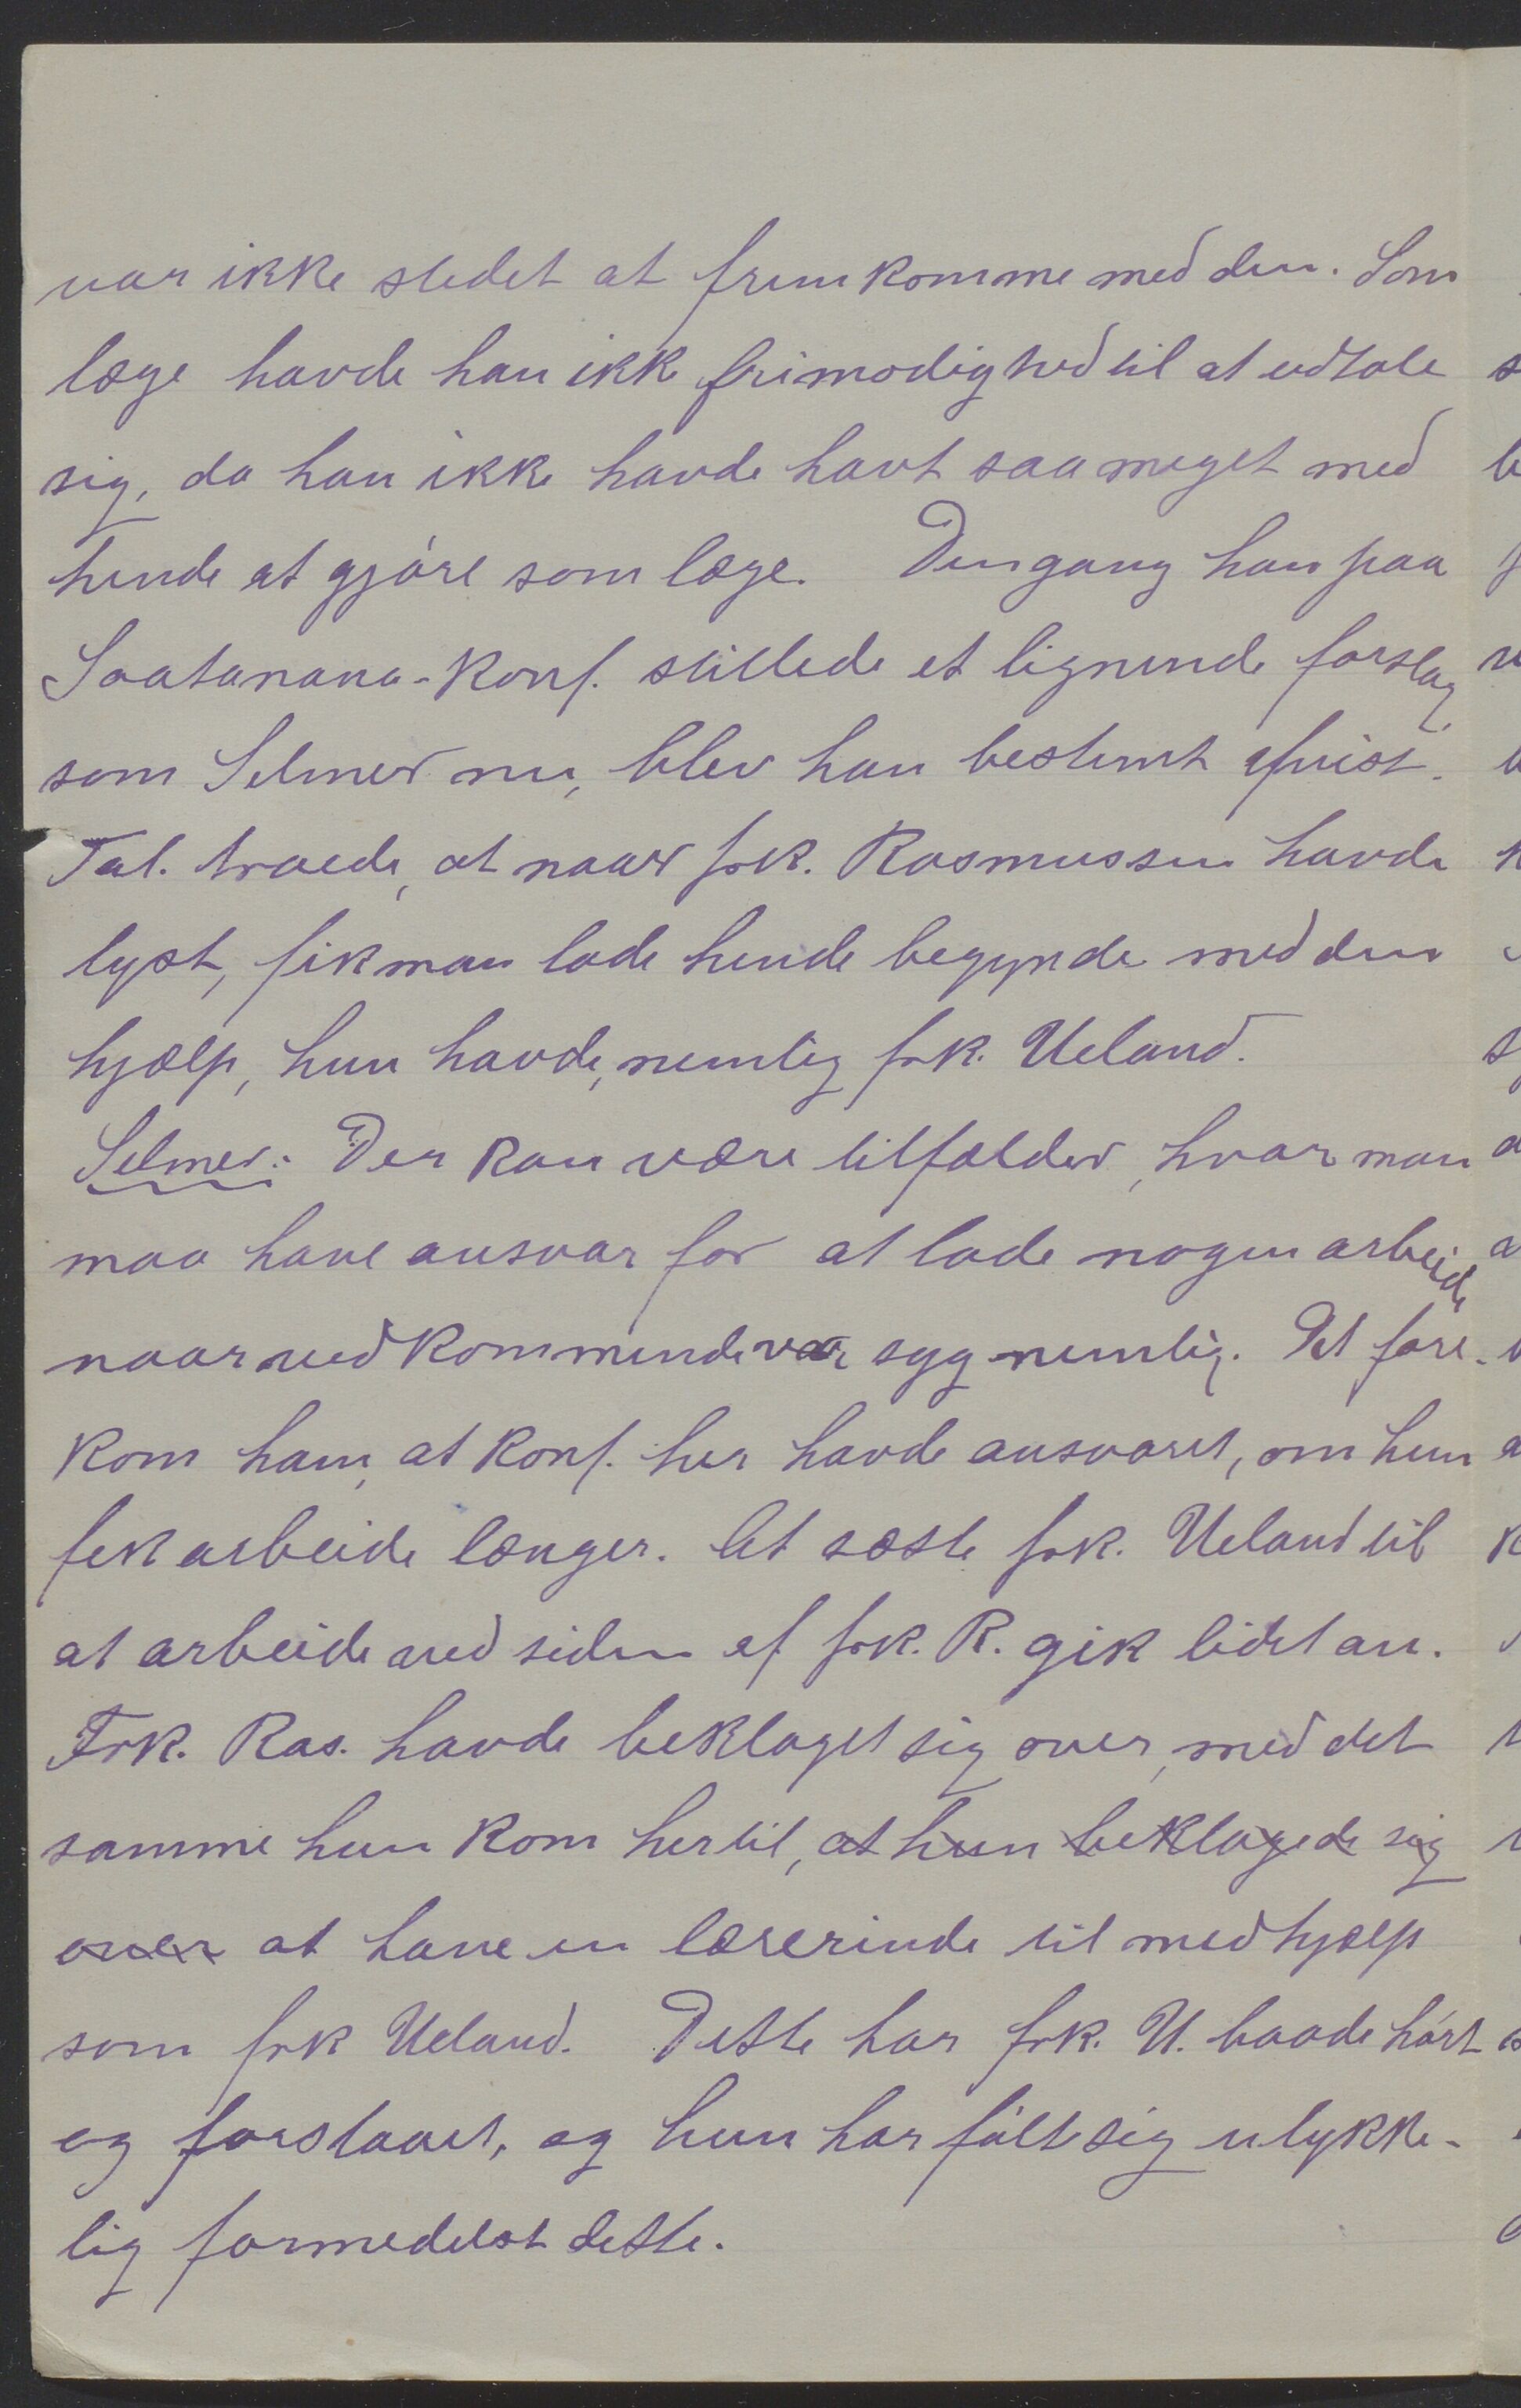 var ikke stedet at fremkomme med den. Som
læge havde han ikke frimodighed til at udtale
sig, da han ikke havde havt saa meget med
hende at gjøre som læge. Dengang han paa
Soatanana-Konf. stillede et lignende forslag
som Selmer nu, blev han bestemt afvist.
Tal. troede, at naar frk. Rasmussen havde
lyst, fik man lade hende begynde med den
hjælp, hun havde, nemlig frk. Ueland.
Selmer: Der kan være tilfælder, hvor man
maa have ansvar for at lade nogen arbeide
naar vedkommende var syg nemlig. Det fore-
kom ham, at Konf. her havde ansvaret, om hun
fek arbeide længer. At sætte frk. Ueland til
at arbeide ved siden af frk. R. gik lidet an.
Frk. Ras. havde beklaget sig over, med det
samme hun kom hertil, at hun beklagede sig
over at have en lærerinde til medhjælp
som frk Ueland. Dette har frk. U. baade hørt
og forstaaet, og hun har følt sig ulykke-
lig formedelst dette.